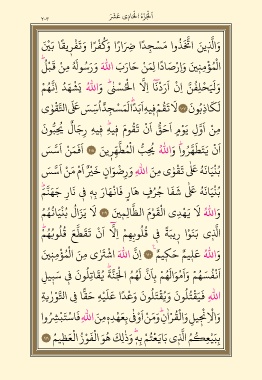 اَلْجُزْءُ الْحَادِى عَشَرَ ٢٠٣
وَالَّذِينَ اتَّخَذُوا مَسْجِدًا ضِرَارًا وَكُفْرًا وَتَفْرِيقًا بَيْنَ
الْمُؤْمِنِينَ وَاِرْصَادًا لِمَنْ حَارَبَ اللّٰهَ وَرَسُولَهُ مِنْ قَبْلُ
وَلَيَحْلِفُنَّ اِنْ اَرَدْنَٓا اِلَّا الْحُسْنٰى وَاللّٰهُ يَشْهَدُ اِنَّهُمْ
لَكَاذِبُونَ ١٠٧ لَا تَقُمْ فِيهِ اَبَدًا لَمَسْجِدٌ اُسِّسَ عَلَى التَّقْوٰى
مِنْ اَوَّلِ يَوْمٍ اَحَقُّ اَنْ تَقُومَ فِيهِ فِيهِ رِجَالٌ يُحِبُّونَ
اَنْ يَتَطَهَّرُوا وَاللّٰهُ يُحِبُّ الْمُطَّهِّرِينَ ١٠٨ اَفَمَنْ اَسَّسَ
بُنْيَانَهُ عَلٰى تَقْوٰى مِنَ اللّٰهِ وَرِضْوَانٍ خَيْرٌ اَمْ مَنْ اَسَّسَ
بُنْيَانَهُ عَلٰى شَفَا جُرُفٍ هَارٍ فَانْهَارَ بِهِ فِى نَارِ جَهَنَّمَ
وَاللّٰهُ لَا يَهْدِى الْقَوْمَ الظَّالِمِينَ ١٠٩ لَا يَزَالُ بُنْيَانُهُمُ
الَّذِى بَنَوْا رِيبَةً فِى قُلُوبِهِمْ اِلَّٓا اَنْ تَقَطَّعَ قُلُوبُهُمْ
وَاللّٰهُ عَلِيمٌ حَكِيمٌ ١١٠ اِنَّ اللّٰهَ اشْتَرٰى مِنَ الْمُؤْمِنِينَ
اَنْفُسَهُمْ وَاَمْوَالَهُمْ بِاَنَّ لَهُمُ الْجَنَّةَ يُقَاتِلُونَ فِى سَبِيلِ
اللّٰهِ فَيَقْتُلُونَ وَيُقْتَلُونَ وَعْدًا عَلَيْهِ حَقًّا فِى التَّوْرٰيةِ
وَالْاِنْجِيلِ وَالْقُرْاٰنِ وَمَنْ اَوْفٰى بِعَهْدِهِ مِنَ اللّٰهِ فَاسْتَبْشِرُوا
بِبَيْعِكُمُ الَّذِى بَايَعْتُمْ بِهِ وَذٰلِكَ هُوَ الْفَوْزُ الْعَظِيمُ ١١١